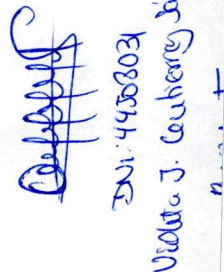 DNI: 44508031
Violeta J. Gutierrez Sá